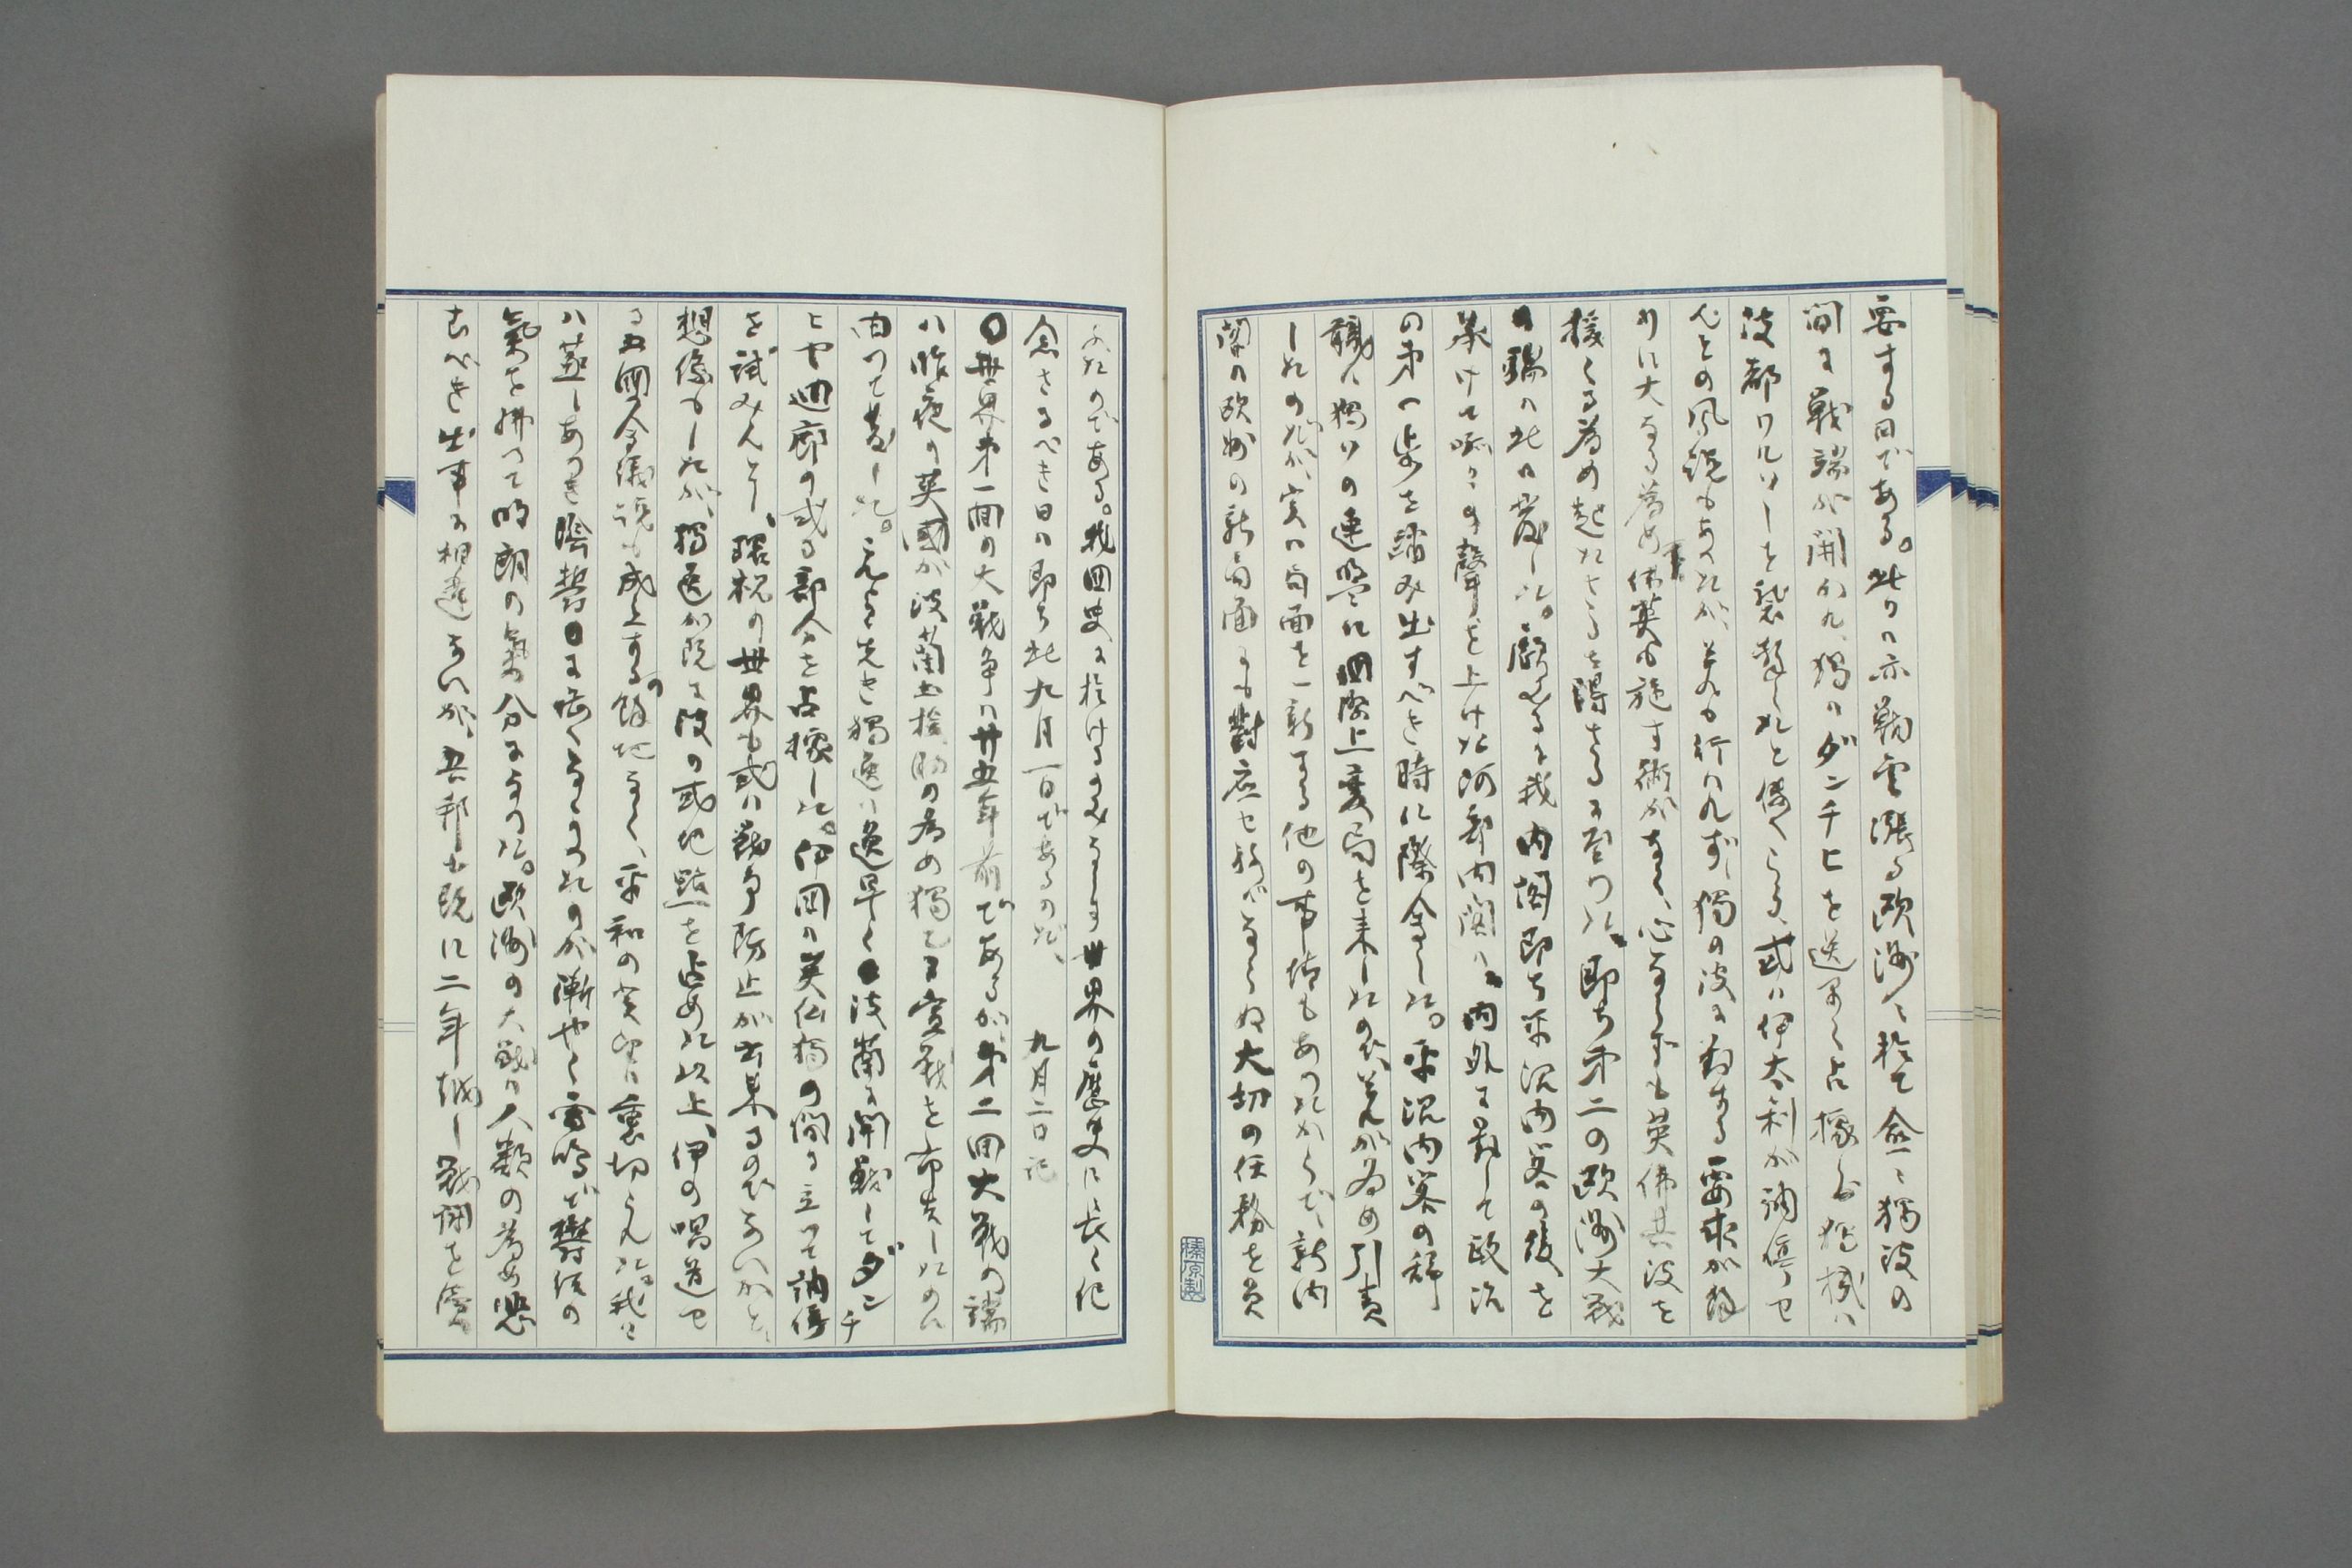 要する日である。此日亦戦雲漲る欧洲に於て愈々獨波の
間に戦端が開かれ、獨のダンチヒを逸早く占據し獨機は
波都ワルソーを襲撃したと傳へらる、或は伊太利が調停セ
んとの風説もあつたが、其も行はれず、獨の波に対する要求が餘
りに大なる為め佛英も施す術がなく、心ならずも英佛共波を
援くる為め起たざるを得ざるに至つた。即ち第二の欧洲大戦
の端は此日発した。顧みるに我内閣即ち平沼内閣の後を
承けて呱々の聲を上げた阿部内閣は、内外に対して政治
の第一歩を踏み出すべき時に際会した。平沼内閣の辞
職は獨ソの連盟に国際上変局を来したので、其が為め引責
したのだが、実は局面を一新する他の事情もあつたからで、新内
閣は欧洲の新局面に対応せねばならぬ大切の任務を負
ふたのである。我国史に於けるのみならず世界の歴史に長く紀
念さるべき日は即ち此九月一日であるのだ、 九月二日記
〇世界第一回の大戦争は廿五年前であるが、第二回大戦の端
は昨夜の英國が波蘭土援助の為め獨乙に宣戦を布告したのに
由つて発した。これより先き獨逸は逸早く波蘭に開戦してダンチ
ヒや廻廊の或る部分を占據した。伊国は英仏獨の間に立つて調停
を試みんとし、環視の世界も或は戦争防止が出来るのでないかと、
想像もしたが、獨逸が既に波の或地點を占めた以上、伊の唱道セ
る五國会議説も成立するの餘地なく、平和の希望は裏切られた。我々
は蒸しあつき陰欝に苦しくなつたのが漸やく雷鳴で欝伏の
氣を掃つて明朗の氣分になつた。欧洲の大戦は人類の為め悲
むべき出事に相違ないが、吾邦も既に二年越し戦闘を続